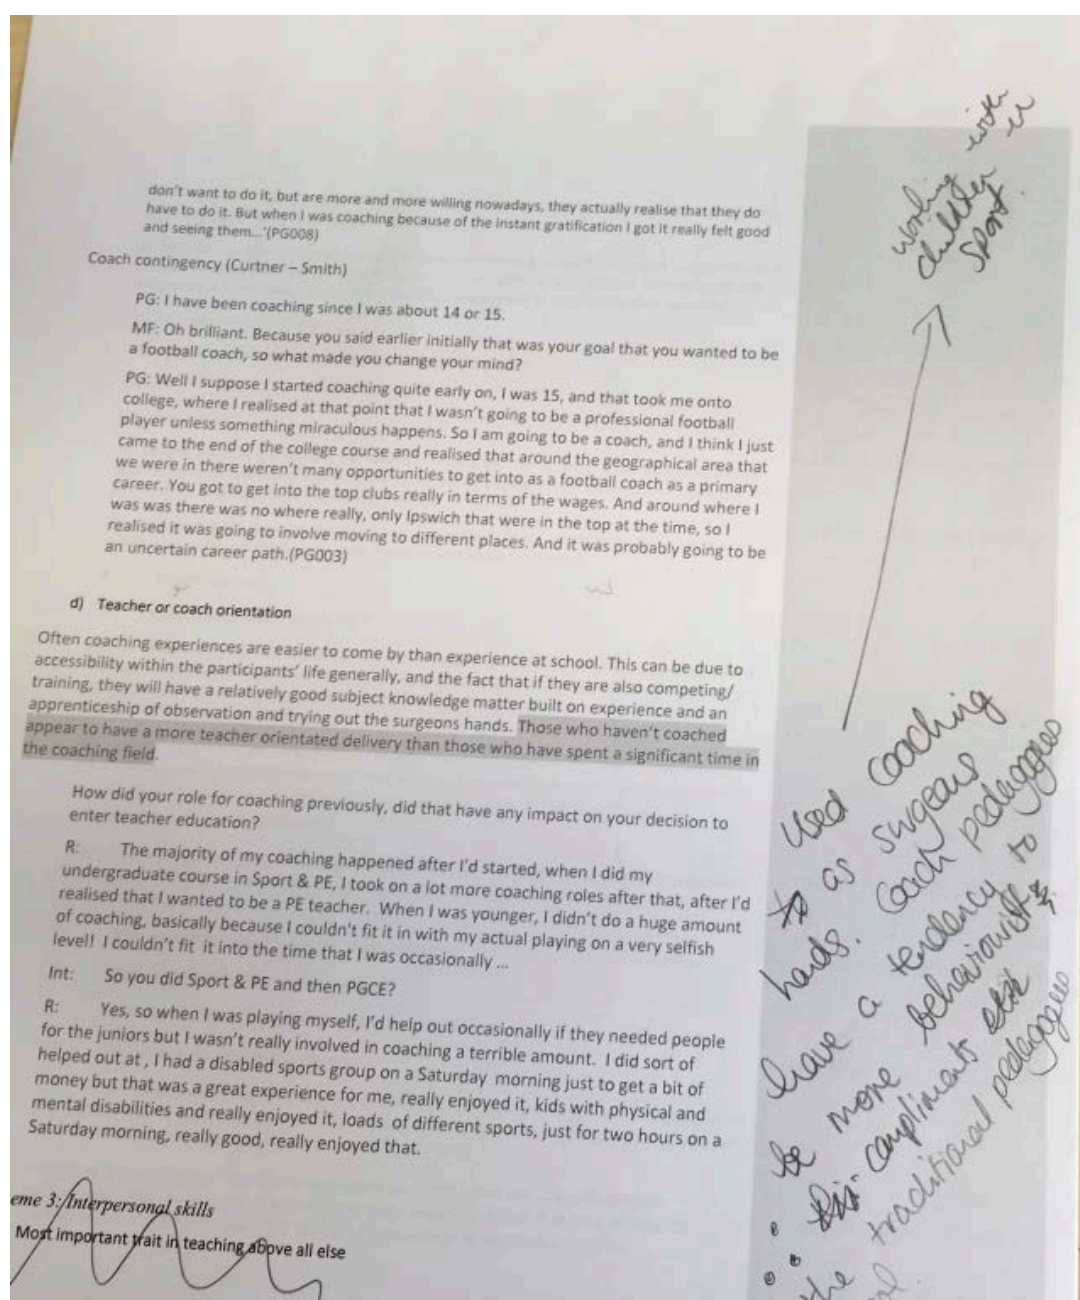 don't want to do it, but are more and more willing nowadays, they actually realise that they do
have to do it. But when I was coaching because of the instant gratification I got it really felt good
and seeing them...'(PG008)
Coach contingency (Curtner – Smith)
PG: I have been coaching since I was about 14 or 15.
MF: Oh brilliant. Because you said earlier initially that was your goal that you wanted to be
a football coach, so what made you change your mind?
PG: Well I suppose I started coaching quite early on, I was 15, and that took me onto
college, where I realised at that point that I wasn't going to be a professional football
player unless something miraculous happens. So I am going to be a coach, and I think I just
came to the end of the college course and realised that around the geographical area that
we were in there weren't many opportunities to get into as a football coach as a primary
career. You got to get into the top clubs really in terms of the wages. And around where I
was was there was no where really, only Ipswich that were in the top at the time, so I
realised it was going to involve moving to different places. And it was probably going to be
an uncertain career path.(PG003)
d) Teacher or coach orientation
Often coaching experiences are easier to come by than experience at school. This can be due to
accessibility within the participants' life generally, and the fact that if they are also competing/
training, they will have a relatively good subject knowledge matter built on experience and an
apprenticeship of observation and trying out the surgeons hands. Those who haven't coached
appear to have a more teacher orientated delivery than those who have spent a significant time in
the coaching field.
How did your role for coaching previously, did that have any impact on your decision to
enter teacher education?
R: The majority of my coaching happened after I'd started, when I did my
undergraduate course in Sport & PE, I took on a lot more coaching roles after that, after I'd
realised that I wanted to be a PE teacher. When I was younger, I didn't do a huge amount
of coaching, basically because I couldn't fit it in with my actual playing on a very selfish
level! I couldn't fit it into the time that I was occasionally ...
Int: So you did Sport & PE and then PGCE?
R: Yes, so when I was playing myself, I'd help out occasionally if they needed people
for the juniors but I wasn't really involved in coaching a terrible amount. I did sort of
helped out at , I had a disabled sports group on a Saturday morning just to get a bit of
money but that was a great experience for me, really enjoyed it, kids with physical and
mental disabilities and really enjoyed it, loads of different sports, just for two hours on a
Saturday morning, really good, really enjoyed that.
eme 3: Interpersonal skills
Most important trait in teaching above all else
working with
children in
sport.
Used coaching
as surgeons
hands. Coach pedagogues
have a tendency to
be more behaviourist
compliments
the traditional pedagogue